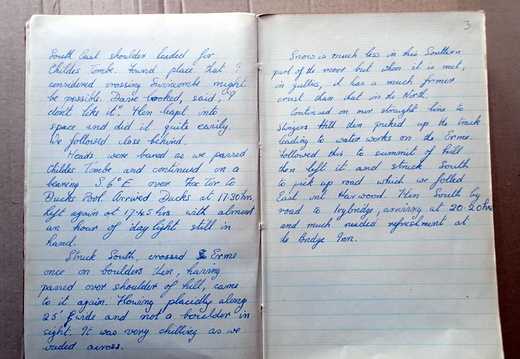 South East shoulder headed for
Childes Tombe. Found place that I
considered crossing Swincombe might
be possible. Dave looked, said, "I
don't like it". Ken leapt into
space and did it quite easily.
We followed close behind.
Heads were bared as we passed
Childes Tombe and continued on a
bearing S.6°E over Fox Tor to
Ducks Pool. Arrived Ducks at 17.30hrs,
left again at 17.45 hrs with almost
an hour of day light still in
hand.
Struck South, crossed Erme
once on boulders then, having
passed over shoulder of hill, came
to it again. Flowing placidly along
25' wide and not a boulder in
sight. It was very chilling as we
waded across.
3
Snow is much less in this Southern
part of the moor but when it is met,
in gullies, it has a much firmer
crust than that in the North.
Continued on our straight line to
Stingers Hill then picked up the track
leading to water works on the Erme.
Followed this to summit of hill
then left it and struck South
to pick up road which we folled
East into Harwood. Then South by
road to Ivybridge, arriving at 20.20hrs
and much needed refreshment at
the Bridge Inn.